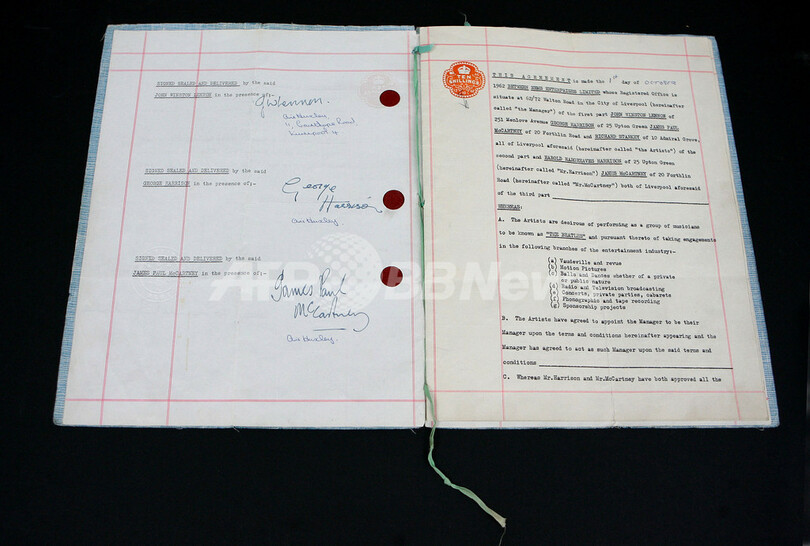 SIGNED SEALED AND DELIVERED by the said
JOHN WINSTON LENNON in the presence of:-
JWLennon.
Liverpool 4
SIGNED SEALED AND DELIVERED by the said
GEORGE HARRISON in the presence of:-
George
Harrison
SIGNED SEALED AND DELIVERED by the said
JAMES PAUL McCARTNEY in the presence of:-
James Paul
McCartney
AFPBBNews
TEN
SHILLINGS
THIS AGREEMENT is made the 1st day of October
1962 BETWEEN NEMS ENTERPRISES LIMITED whose Registered Office is
situate at 62/72 Walton Road in the City of Liverpool (hereinafter
called "the Manager") of the first part JOHN WINSTON LENNON of
251 Menlove Avenue GEORGE HARRISON of 25 Upton Green JAMES PAUL
McCARTNEY of 20 Forthlin Road and RICHARD STARKEY of 10 Admiral Grove,
all of Liverpool aforesaid (hereinafter called "the Artists") of the
second part and HAROLD HARGREAVES HARRISON of 25 Upton Green
(hereinafter called "Mr.Harrison") JAMES McCARTNEY of 20 Forthlin
Road (hereinafter called "Mr.McCartney") both of Liverpool aforesaid
of the third part
WHEREAS:
A. The Artists are desirous of performing as a group of musicians
to be known as "THE BEATLES" and pursuant thereto of taking engagements
in the following branches of the entertainment industry:-
(a) Vaudeville and revue
(b) Motion Pictures
(c) Balls and Dances whether of a private
or public nature
(d) Radio and Television broadcasting
(e) Concerts, private parties, cabarets
(f) Phonographic and tape recording
(g) Sponsorship projects
B. The Artists have agreed to appoint the Manager to be their
Manager upon the terms and conditions hereinafter appearing and the
Manager has agreed to act as such Manager upon the said terms and
conditions
C. Whereas Mr.Harrison and Mr.McCartney have both approved all the